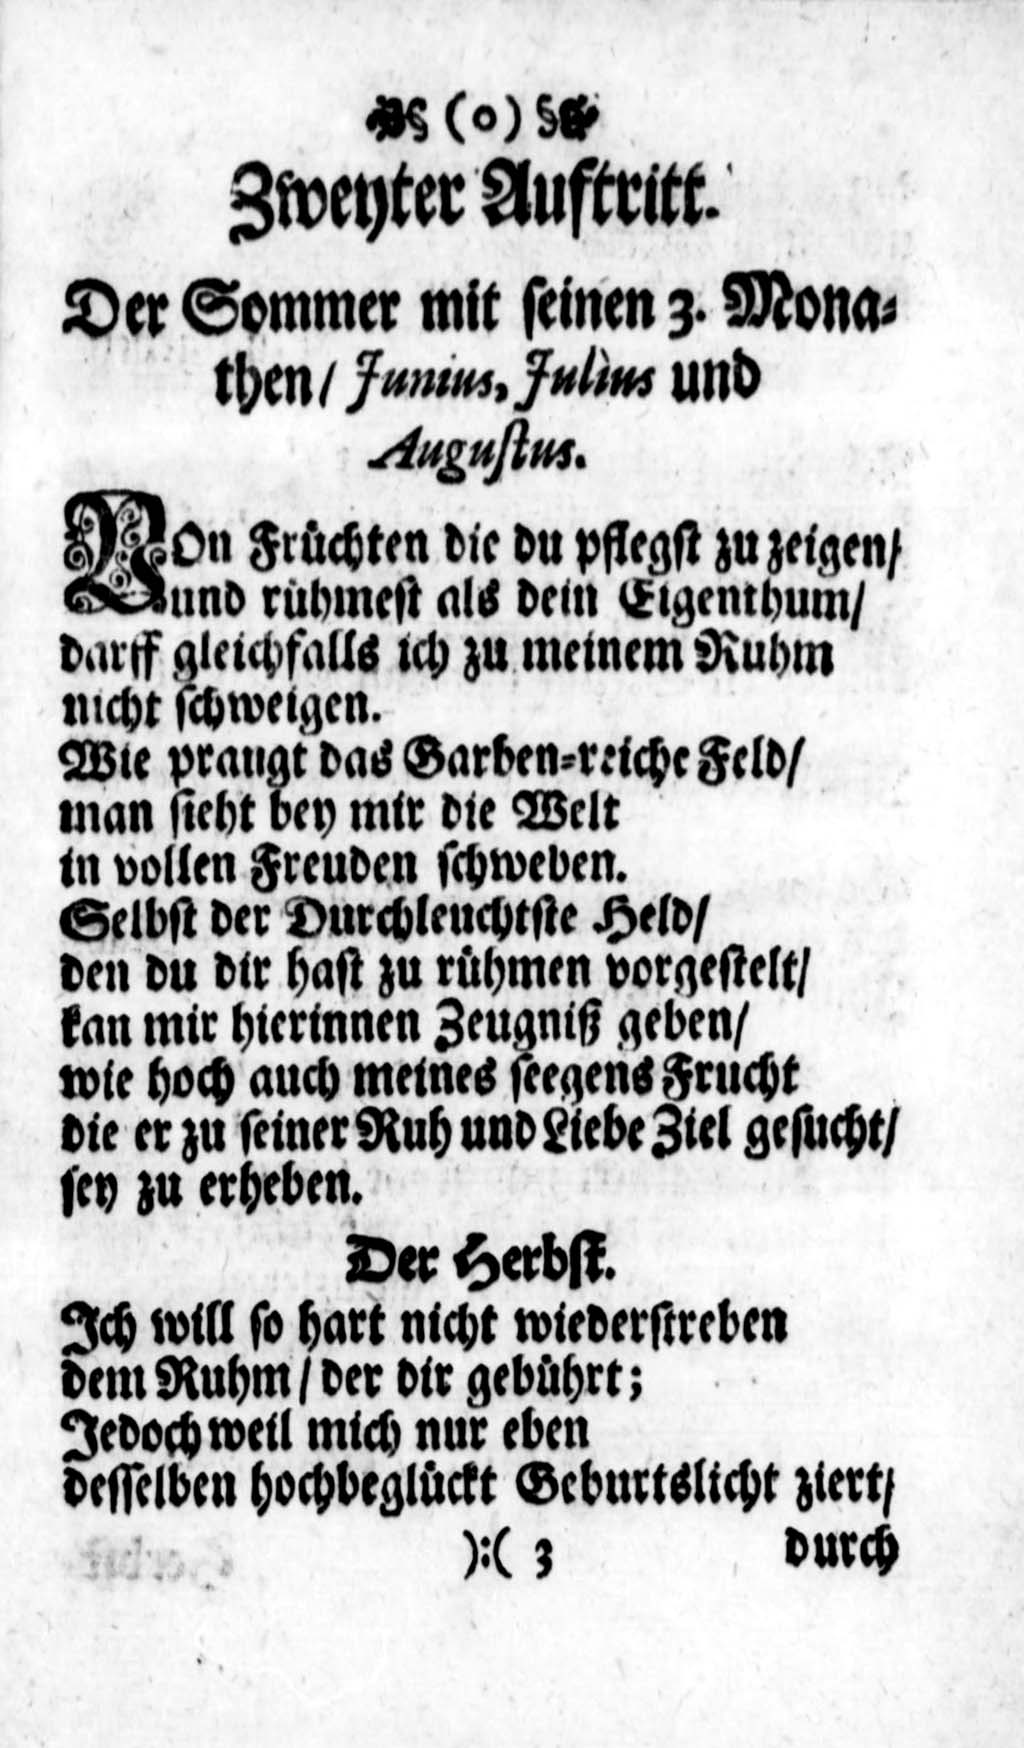 § (o) §
Zweyter Auftritt.
Der Sommer mit seinen 3. Mona-
then/ Junius, Julius und
Augustus.
VOn Früchten die du pflegst zu zeigen/
und rühmest als dein Eigenthum/
darff gleichfalls ich zu meinem Ruhm
nicht schweigen.
Wie prangt das Garben-reiche Feld/
man sieht bey mir die Welt
in vollen Freuden schweben.
Selbst der Durchleuchtste Held/
den du dir hast zu rühmen vorgestelt/
kan mir hierinnen Zeugniß geben/
wie hoch auch meines seegens Frucht
die er zu seiner Ruh und Liebe Ziel gesucht/
sey zu erheben.
Der Herbst.
Ich will so hart nicht wiederstreben
dem Ruhm/ der dir gebührt;
Jedoch weil mich nur eben
desselben hochbeglückt Geburtslicht ziert/
):( 3 durch